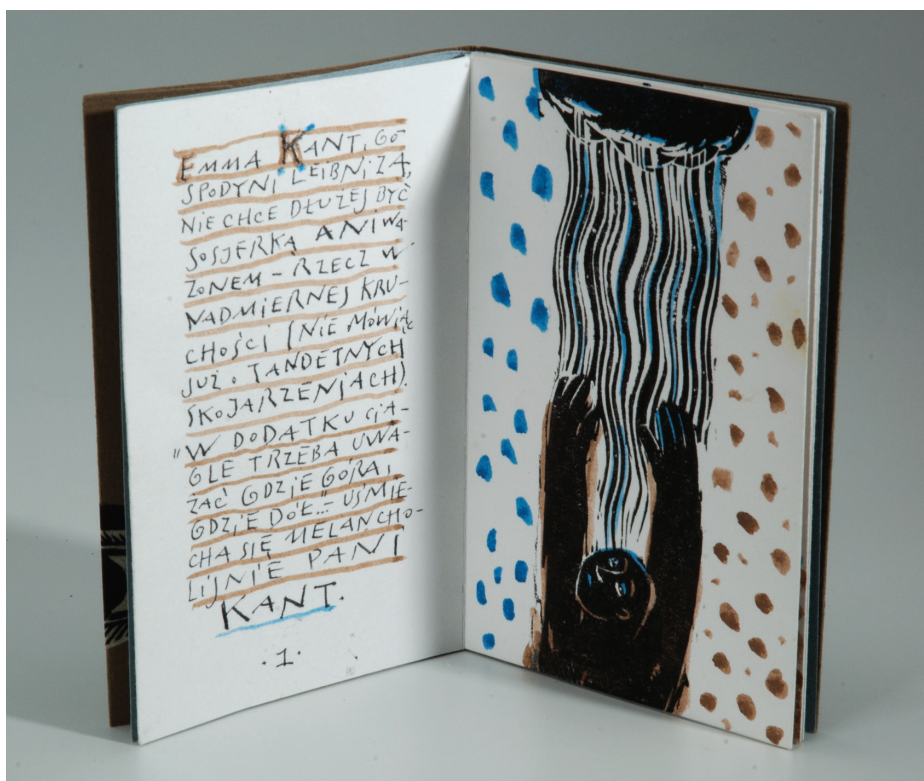 EMMA KANT, GO-
SPODYNI LEIBNIZA,
NIE CHCE DŁUŻEJ BYĆ
SOSJERKĄ ANI WA-
ZONEM – RZECZ W
NADMIERNEJ KRU-
CHOŚCI (NIE MÓWIĄC
JUŻ O TANDETNYCH
SKOJARZENIACH).
"W DODATKU CIĄ-
GLE TRZEBA UWA-
ŻAĆ GDZIE GÓRA,
GDZIE DÓŁ..." – UŚMIE-
CHA SIĘ MELANCHO-
LIJNIE PANI
KANT.
·1·